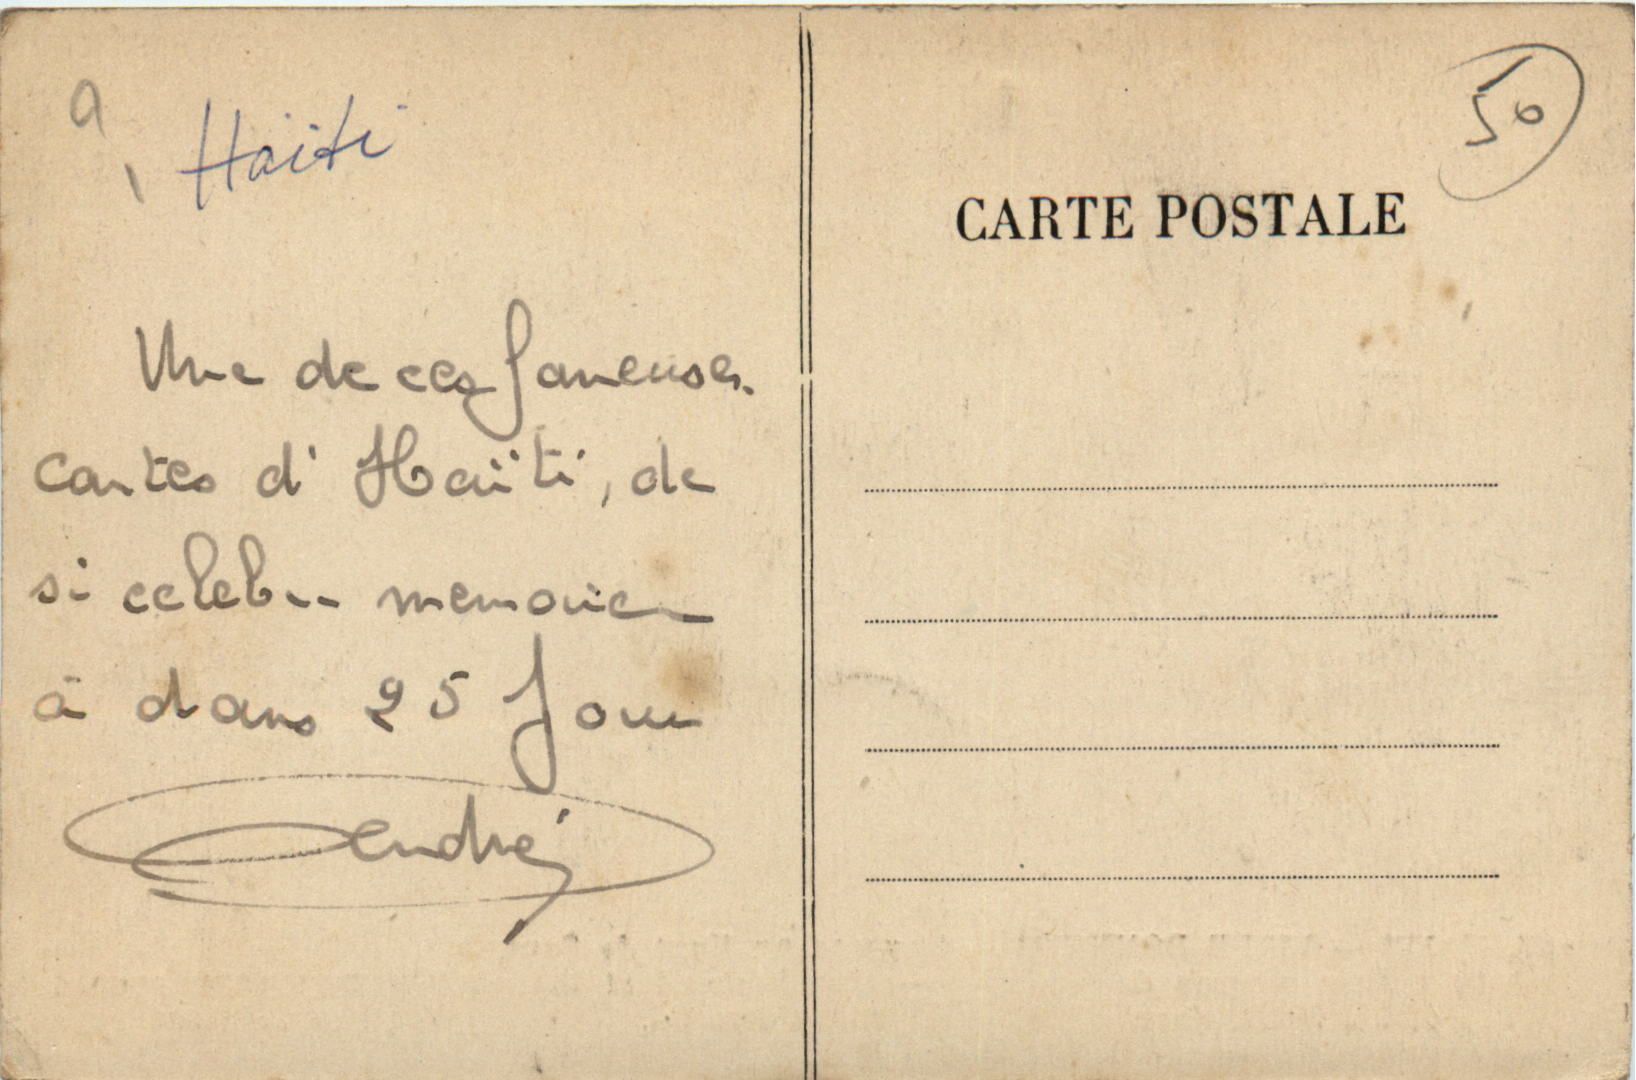 a
Haïti
50
CARTE POSTALE
Une de ces fameuses
cartes d'Haïti, de
si celebre memoire
à dans 25 Jours
André